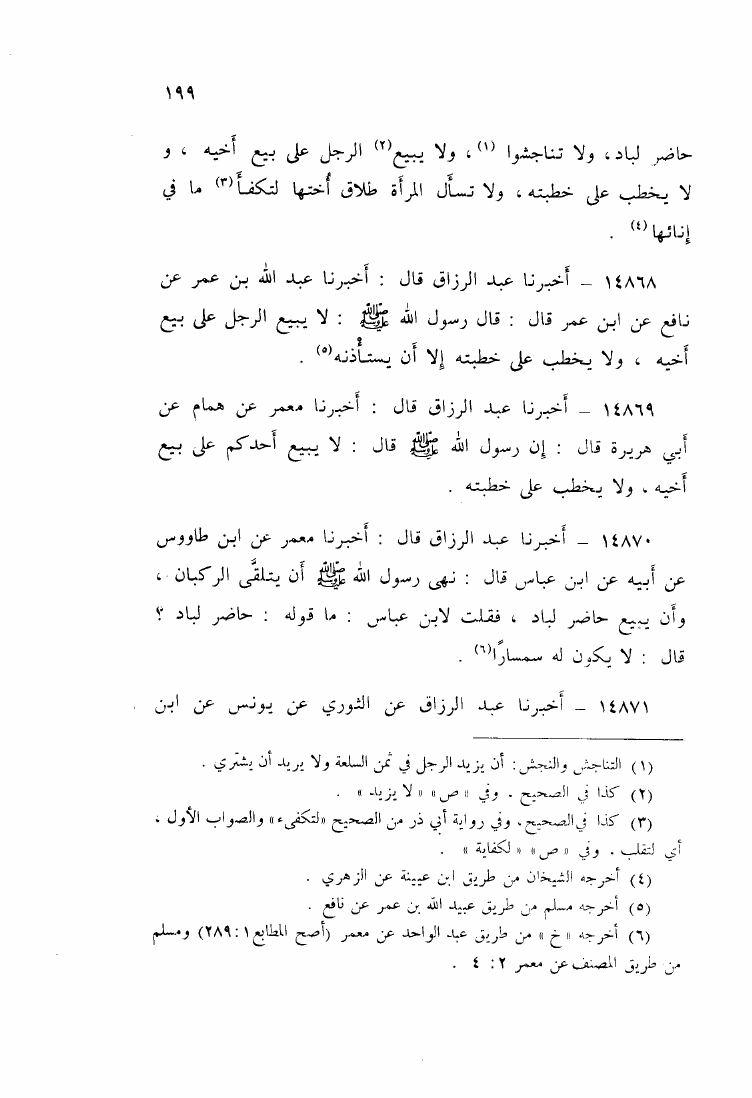 ١٩٩
حاضر لباد، ولا تناجشوا (١)، ولا يبيع(٢) الرجل على بيع أخيه ، و
لا يخطب على خطبته، ولا تسأل المرأة طلاق أختها لتكفأ(٣) ما في
إنائها(٤) .
١٤٨٦٨ – أخبرنا عبد الرزاق قال : أخبرنا عبد الله بن عمر عن
نافع عن ابن عمر قال : قال رسول الله ﷺ : لا يبيع الرجل على بيع
أخيه ، ولا يخطب على خطبته إلا أن يستأذنه(٥) .
١٤٨٦٩ – أخبرنا عبد الرزاق قال : أخبرنا معمر عن همام عن
أبي هريرة قال : إن رسول الله ﷺ قال : لا يبيع أحدكم على بيع
أخيه ، ولا يخطب على خطبته .
١٤٨٧٠ – أخبرنا عبد الرزاق قال : أخبرنا معمر عن ابن طاووس
عن أبيه عن ابن عباس قال : نهى رسول الله ﷺ أن يتلقَّى الركبان ،
وأن يبيع حاضر لباد ، فقلت لابن عباس : ما قوله : حاضر لباد ؟
قال : لا يكون له سمسارًا(٦) .
١٤٨٧١ – أخبرنا عبد الرزاق عن الثوري عن يونس عن ابن
(١) التناجش والنجش: أن يزيد الرجل في ثمن السلعة ولا يريد أن يشتري .
(٢) كذا في الصحيح . وفي « ص » « لا يزيد » .
(٣) كذا في الصحيح، وفي رواية أبي ذر من الصحيح «لتكفىء» والصواب الأول ،
أي لتقلب . وفي « ص » « لكفاية » .
(٤) أخرجه الشيخان من طريق ابن عيينة عن الزهري .
(٥) أخرجه مسلم من طريق عبيد الله بن عمر عن نافع .
(٦) أخرجه « خ » من طريق عبد الواحد عن معمر (أصح المطابع ١: ٢٨٩) ومسلم
من طريق المصنف عن معمر ٢: ٤ .